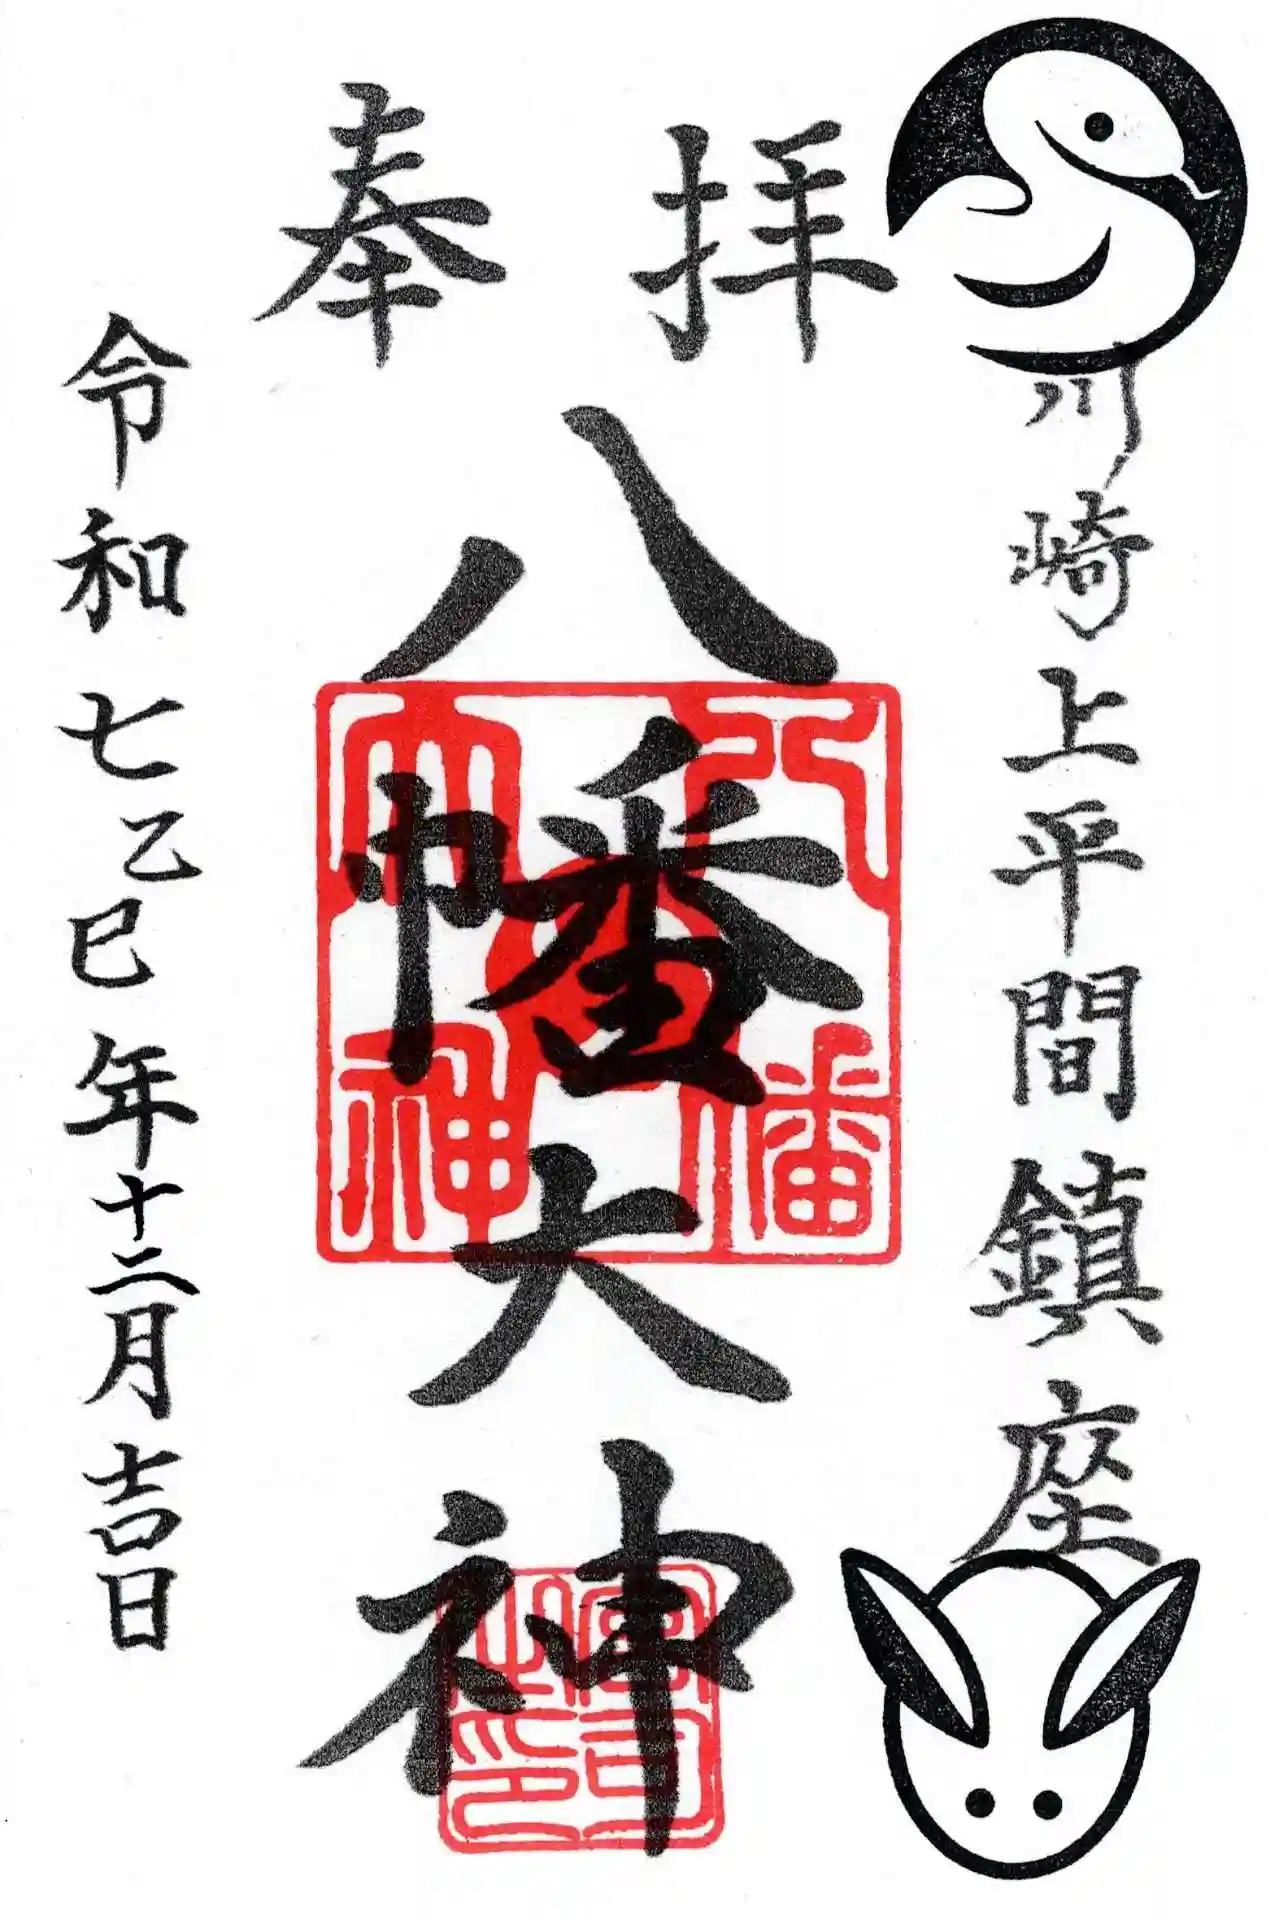 川崎上平間鎮座
奉拝
八幡大神
八幡大神
宮司之印
令和七乙巳年十二月吉日